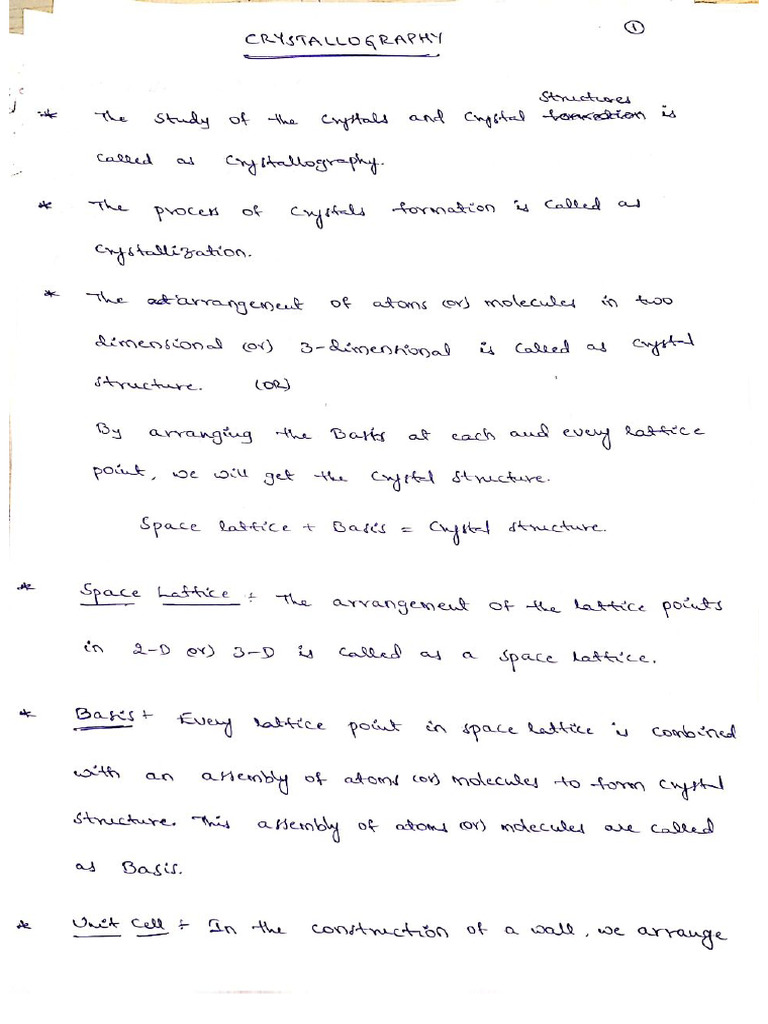 ①
CRYSTALLOGRAPHY
* The study of the crystals and crystal structures is
called as crystallography.
* The process of crystals formation is called as
crystallization.
* The arrangement of atoms (or) molecules in two
dimensional (or) 3-dimensional is called as crystal
structure. (OR)
By arranging the Basis at each and every lattice
point, we will get the crystal structure.
Space lattice + Basis = crystal structure.
* Space Lattice :- The arrangement of the lattice points
in 2-D (or) 3-D is called as a space lattice.
* Basis :- Every lattice point in space lattice is combined
with an assembly of atoms (or) molecules to form crystal
structure. This assembly of atoms (or) molecules are called
as Basis.
* Unit Cell :- In the construction of a wall, we arrange